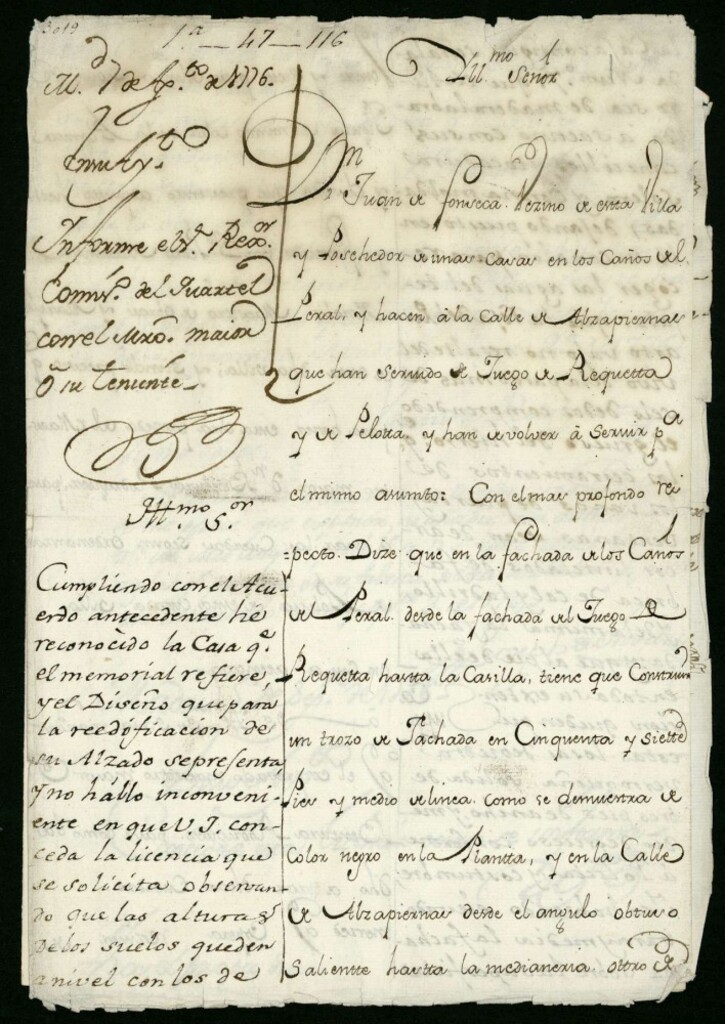 1.ª — 47 — 116
M.d 7 de Ag.to de 1776.
En su Ay.to
Informe el S.r Rex.or
Comis.o del Quartel
con el Mro. maior
ô su teniente_
Ill.mo S.or
Cumpliendo con el Acu-
erdo antecedente hé
reconocido la Casa q.e
el memorial refiere,
y el Diseño que para
la reedificacion de
su Alzado se presenta,
y no hállo inconveni-
ente en que V. I. con-
ceda la licencia que
se solicita observan-
do que las alturas
de los suelos queden
a nivel con los de
Ill.mo Señor
Dn Juan de Fonseca. Vezino de esta Villa
y Poschedor de unas Casas en los Caños del
Peral, y hacen â la Calle de Alzapiernas
que han servido de Juego de Requetta
y de Pelotta, y han de volver â servir p.a
el mismo asumto: Con el mas profondo res
=pecto. Dize que en la fachada de los Caños
del Peral desde la fachada del Juego de
Requetta hastta la Casilla, tiene que Construir
un trozo de Fachada en Cinquenta y siette
Pies y medio de linea, como se demuestra de
Color negro en la Plantta, y en la Calle
de Alzapiernas desde el angulo obtuso
Saliente hastta la medianeria ottro